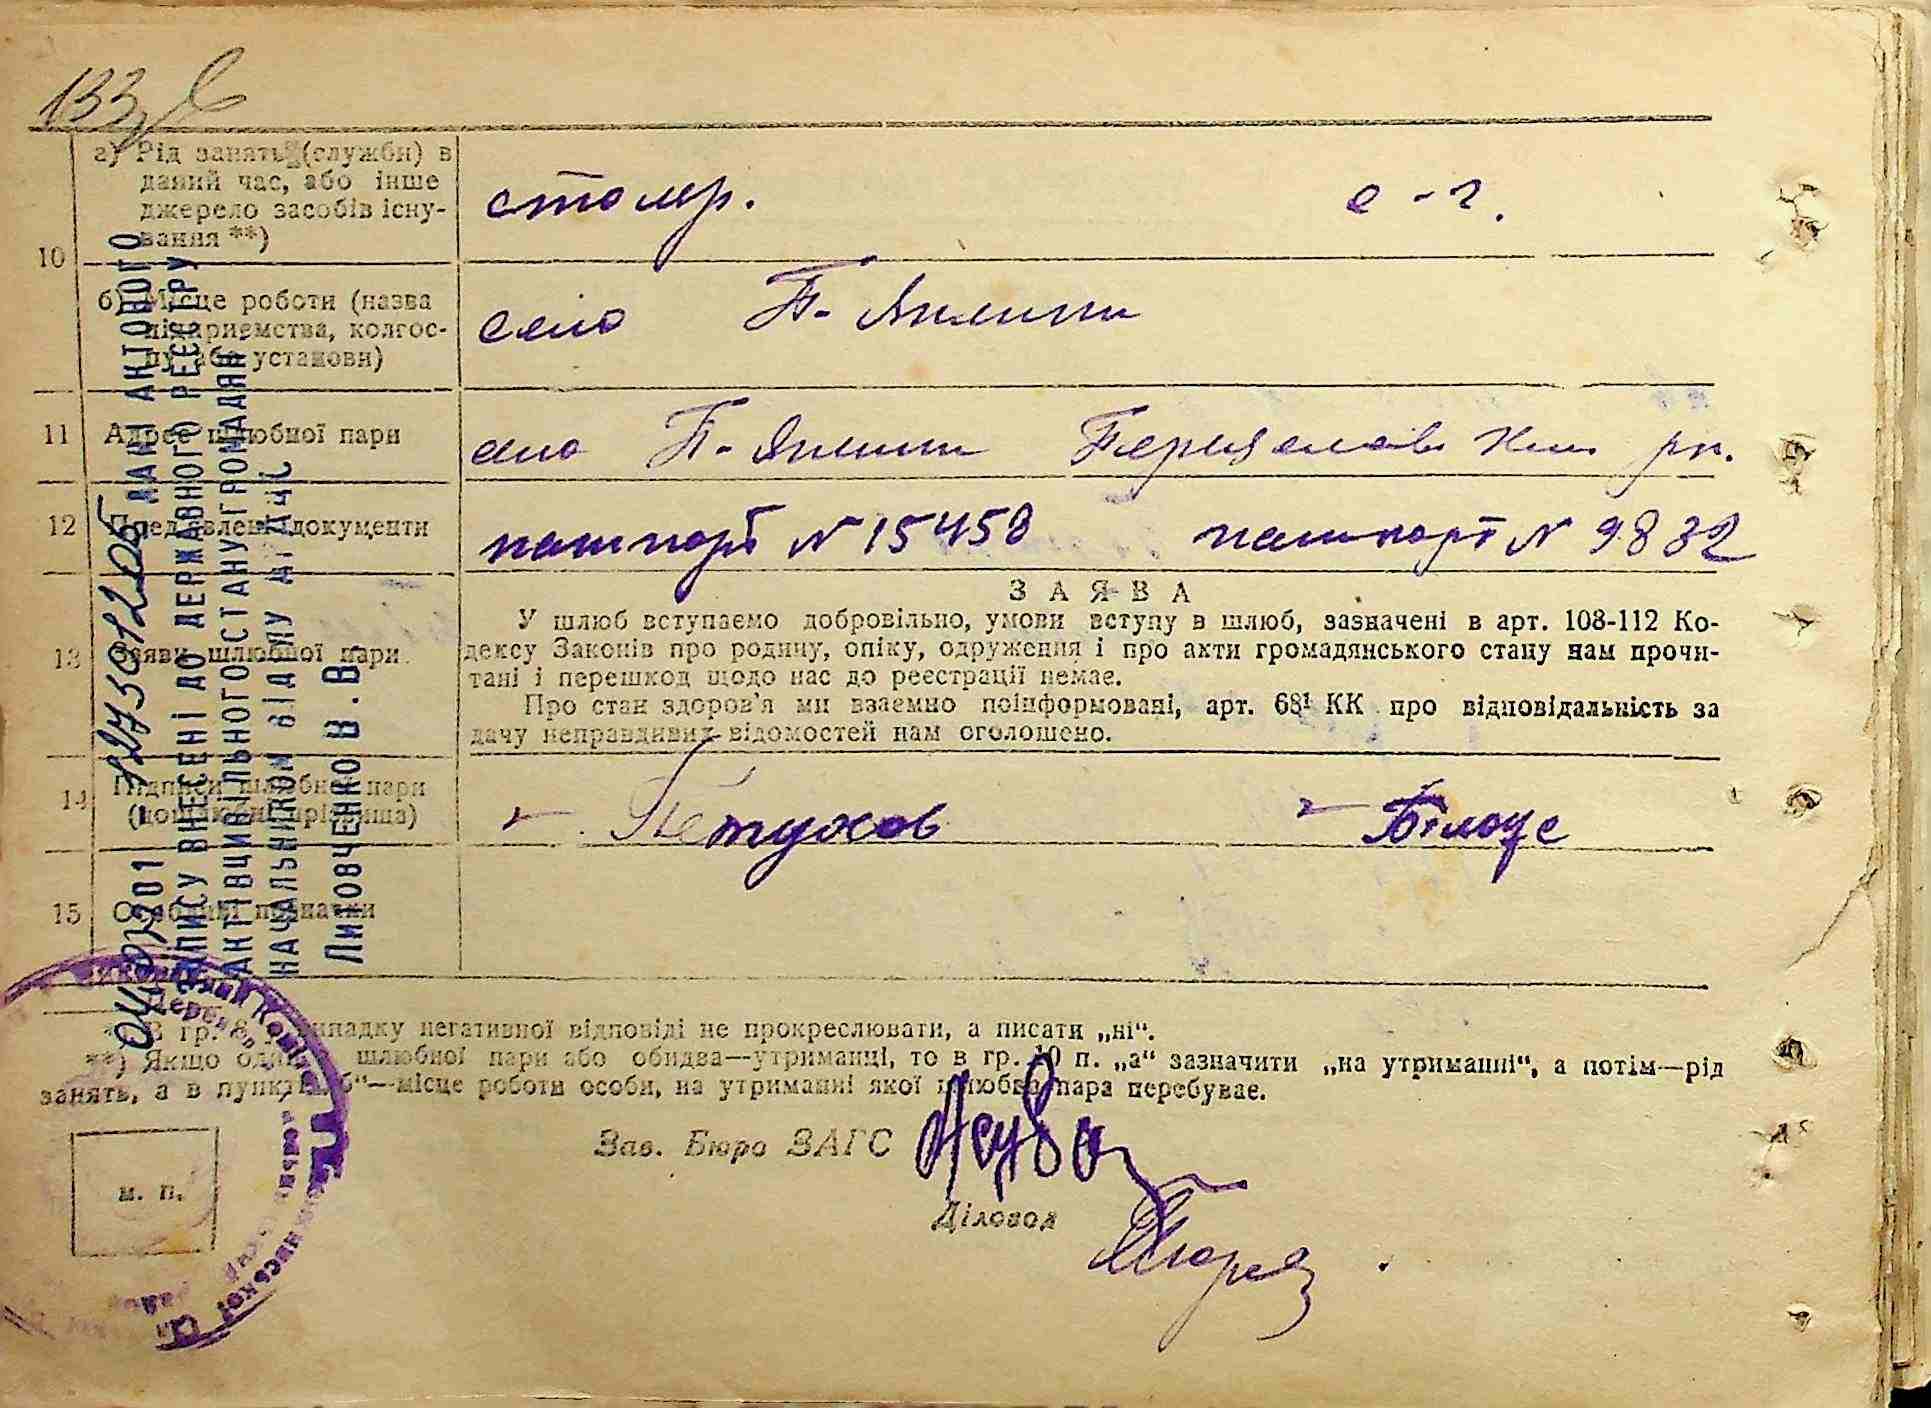 133
а) Рід занять (служби) в
даний час, або інше
джерело засобів існу-
вання **)
столяр. с-г.
10
б) Місце роботи (назва
підприємства, колгос-
пу або установи)
село П-
11 Адрес шлюбної пари
село П- рн.
12 Пред'явлені документи
пашпорт N 15458 пашпорт N 9832
ЗАЯВА
У шлюб вступаємо добровільно, умови вступу в шлюб, зазначені в арт. 108-112 Ко-
13 Заяви шлюбної пари
дексу Законів про родину, опіку, одруження і про акти громадянського стану нам прочи-
тані і перешкод щодо нас до реєстрації немає.
Про стан здоров'я ми взаємно поінформовані, арт. 68¹ КК про відповідальність за
дачу неправдивих відомостей нам оголошено.
14 Підписи шлюбної пари
(дошлюбні прізвища)
Петухов Білоус
15 Особливі познатки
*) В гр. 8 випадку негативної відповіді не прокреслювати, а писати „ні“.
**) Якщо один з шлюбної пари або обидва—утриманці, то в гр. 10 п. „а“ зазначити „на утриманні“, а потім—рід
занять, а в пункті „б“—місце роботи особи, на утриманні якої шлюбна пара перебуває.
Зав. Бюро ЗАГС
Діловод
м. п.
ДАНІ АКТОВОГО
ЗАПИСУ ВНЕСЕНІ ДО ДЕРЖАВНОГО РЕЄСТРУ
АКТІВ ЦИВІЛЬНОГО СТАНУ ГРОМАДЯН
НАЧАЛЬНИКОМ ВІДДІЛУ
Липовченко В.В.